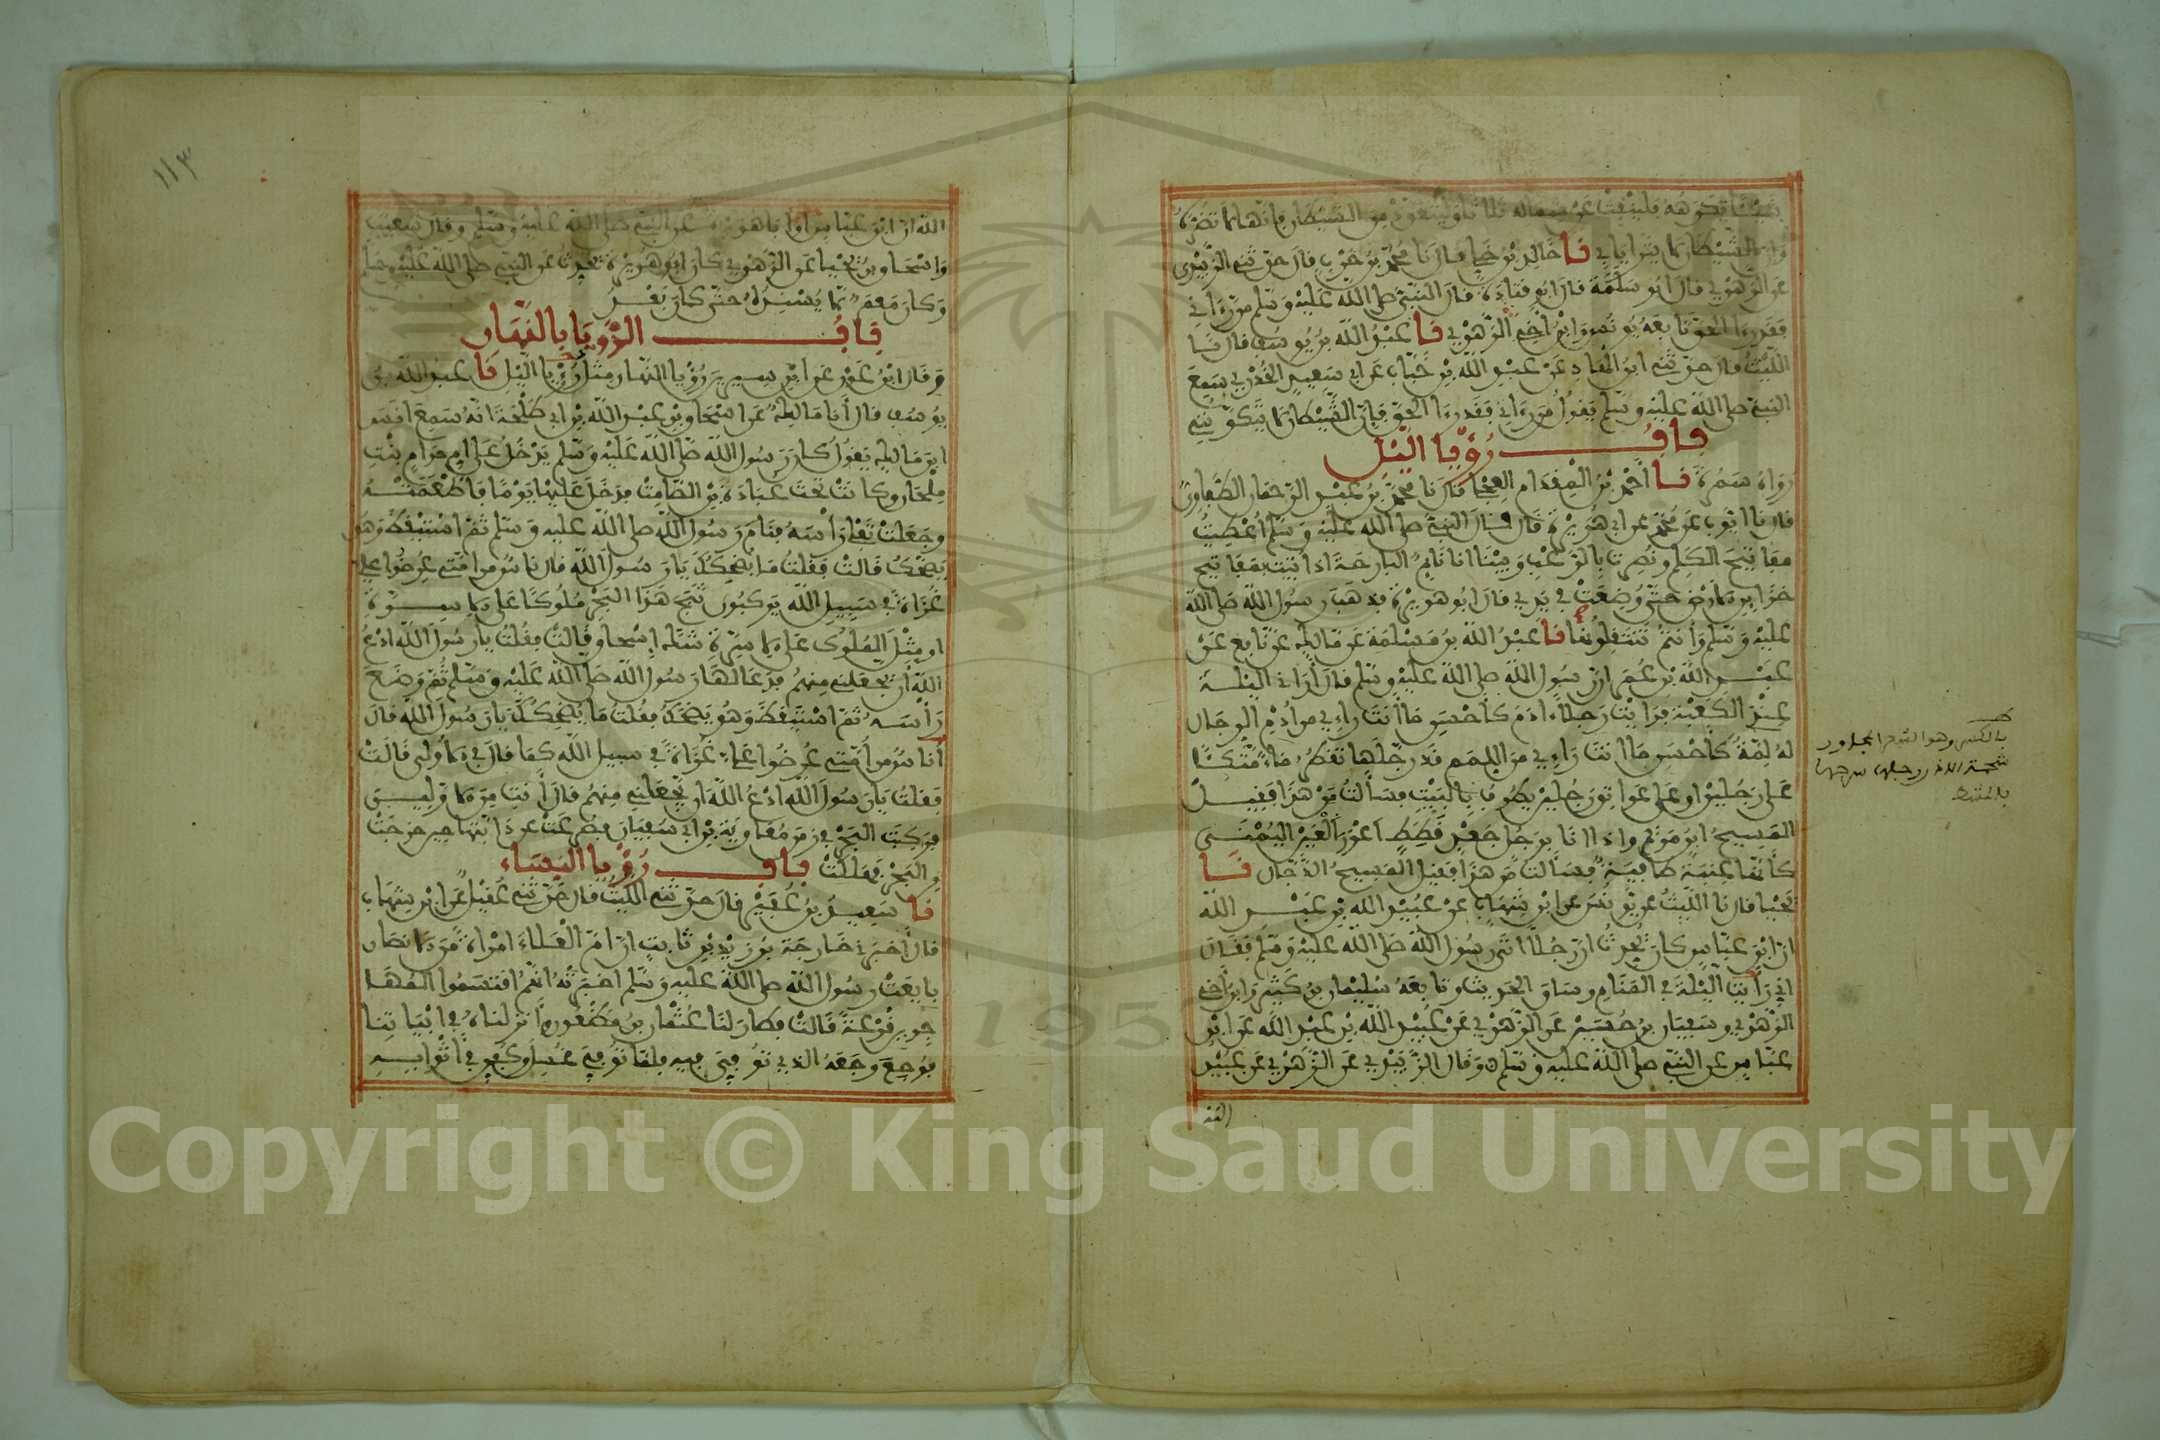 شيئا يكرهه فلينفث عن شماله ثلاثا وليتعوذ من الشيطان فانها لا تضره
وان الشيطان لا يتراءا بي نا خالد بن خلي قال نا محمد بن حرب قال حدثني الزبيدي
عن الزهري قال ابو سلمة قال ابو قتادة قال النبي صلى الله عليه وسلم من رءاني
فقد رءا الحق تابعه يونس وابن أخي الزهري نا عبد الله بن يوسف قال نا
الليث قال حدثني ابن الهاد عن عبد الله بن خباب عن ابي سعيد الخدري سمع
النبي صلى الله عليه وسلم يقول من رءاني فقد رءا الحق فإن الشيطان لا يتكونني
باب رؤيا الليل
رواه سمرة نا أحمد بن المقدام العجلي قال نا محمد بن عبد الرحمان الطفاوي
قال نا ايوب عن محمد عن ابي هريرة قال قال النبي صلى الله عليه وسلم أعطيت
مفاتيح الكلم ونصرت بالرعب وبينا انا نائم البارحة اذ أتيت بمفاتيح
خزاين الارض حتى وضعت في يدي قال ابو هريرة فذهب رسول الله صلى الله
عليه وسلم وأنتم تنتقلونها نا عبد الله بن مسلمة عن مالك عن نافع عن
عبد الله بن عمر ان رسول الله صلى الله عليه وسلم قال أراني الليلة
عند الكعبة فرايت رجلا ءادم كأحسن ما أنت راء من أدم الرجال
له لمة كأحسن ما انت راء من اللمم قد رجلها تقطر ماء متكئا
على رجلين او على عواتق رجلين يطوف بالبيت فسألت من هذا فقيل
المسيح ابن مريم واذا انا برجل جعد قطط أعور العين اليمنى
كأنها عنبة طافية فسألت من هذا فقيل المسيح الدجال نا
يحيا قال نا الليث عن يونس عن ابن شهاب عن عبيد الله بن عبد الله
ان ابن عباس كان يحدث ان رجلا أتى رسول الله صلى الله عليه وسلم فقال
اني رأيت الليلة في المنام وساق الحديث وتابعه سليمان بن كثير وابن أخي
الزهري وسفيان بن حسين عن الزهري عن عبيد الله بن عبد الله عن ابن
عباس عن النبي صلى الله عليه وسلم وقال الزبيدي عن الزهري عن عبيد
الله
بالكسر وهو الشعر المجاور
شحمة الاذن رجلها سرحها
بالمشط
١١٣
الله ان ابن عباس او ابا هريرة عن النبي صلى الله عليه وسلم وقال شعيب
واسحاق بن يحيا عن الزهري كان ابو هريرة يحدث عن النبي صلى الله عليه وسلم
وكان معمر لا يسنده حتى كان بعد
باب الرؤيا بالنهار
وقال ابن عون عن ابن سيرين رؤيا النهار مثل رؤيا الليل نا عبد الله بن
يوسف قال أنا مالك عن اسحاق بن عبد الله بن ابي طلحة انه سمع انس
ابن مالك يقول كان رسول الله صلى الله عليه وسلم يدخل على ام حرام بنت
ملحان وكانت تحت عبادة بن الصامت فدخل عليها يوما فاطعمته
وجعلت تفلي رأسه فنام رسول الله صلى الله عليه وسلم ثم استيقظ وهو
يضحك قالت فقلت ما يضحكك يا رسول الله قال ناس من امتي عرضوا علي
غزاة في سبيل الله يركبون ثبج هذا البحر ملوكا على الاسرة
او مثل الملوك على الاسرة شك إسحاق قالت فقلت يا رسول الله ادع
الله أن يجعلني منهم فدعا لها رسول الله صلى الله عليه وسلم ثم وضع
رأسه ثم استيقظ وهو يضحك فقلت ما يضحكك يا رسول الله قال
أناس من أمتي عرضوا علي غزاة في سبيل الله كما قال في الاولى قالت
فقلت يا رسول الله ادع الله أن يجعلني منهم قال أنت من الاولين
فركبت البحر في زمن معاوية بن ابي سفيان فصرعت عن دابتها حين خرجت
من البحر فهلكت باب رؤيا النساء
نا سعيد بن عفير قال حدثني الليث قال حدثني عقيل عن ابن شهاب
قال أخبرني خارجة بن زيد بن ثابت ان أم العلاء امرأة من الانصار
بايعت رسول الله صلى الله عليه وسلم اخبرته انهم اقتسموا المها
جرين قرعة قالت فطار لنا عثمان بن مظعون وأنزلناه في ابياتنا
فوجع وجعه الذي توفي فيه فلما توفي غسل وكفن في أثوابه